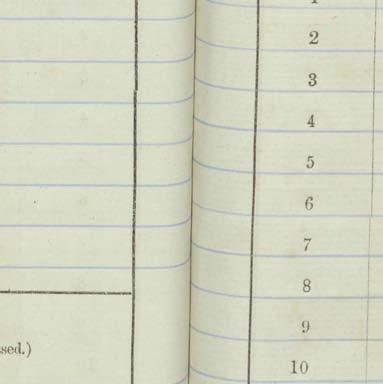 sed.)
1
2
3
4
5
6
7
8
9
10